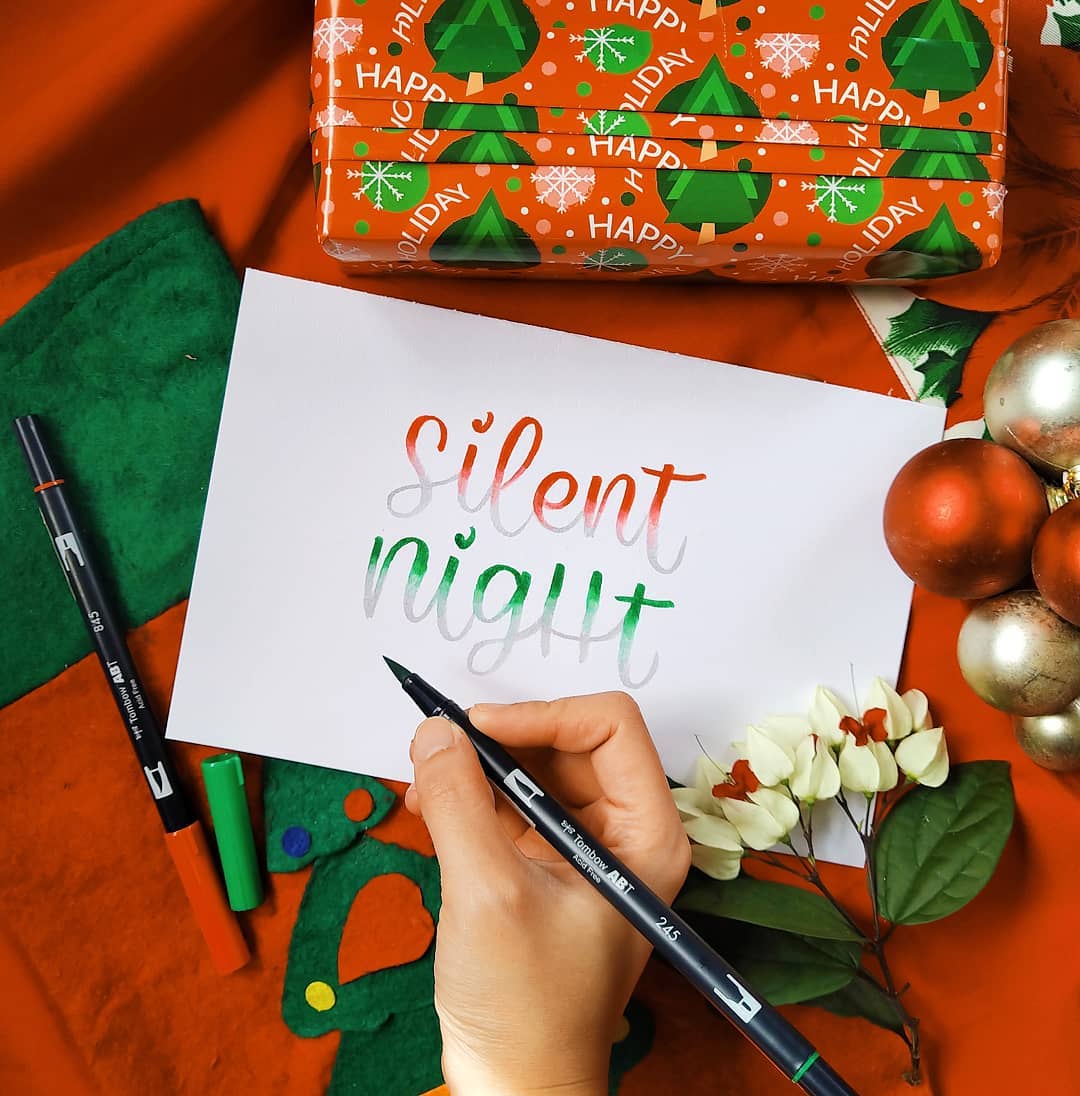 HAPPY
HOLIDAY
HAPPY
HOLIDAY
HAPPY
HOLIDAY
HAPPY
HOLIDAY
HAPPY
HOLIDAY
HAPPY
HOLIDAY
silent
night
845
Tombow ABT
Acid Free
Tombow ABT
Acid Free
245